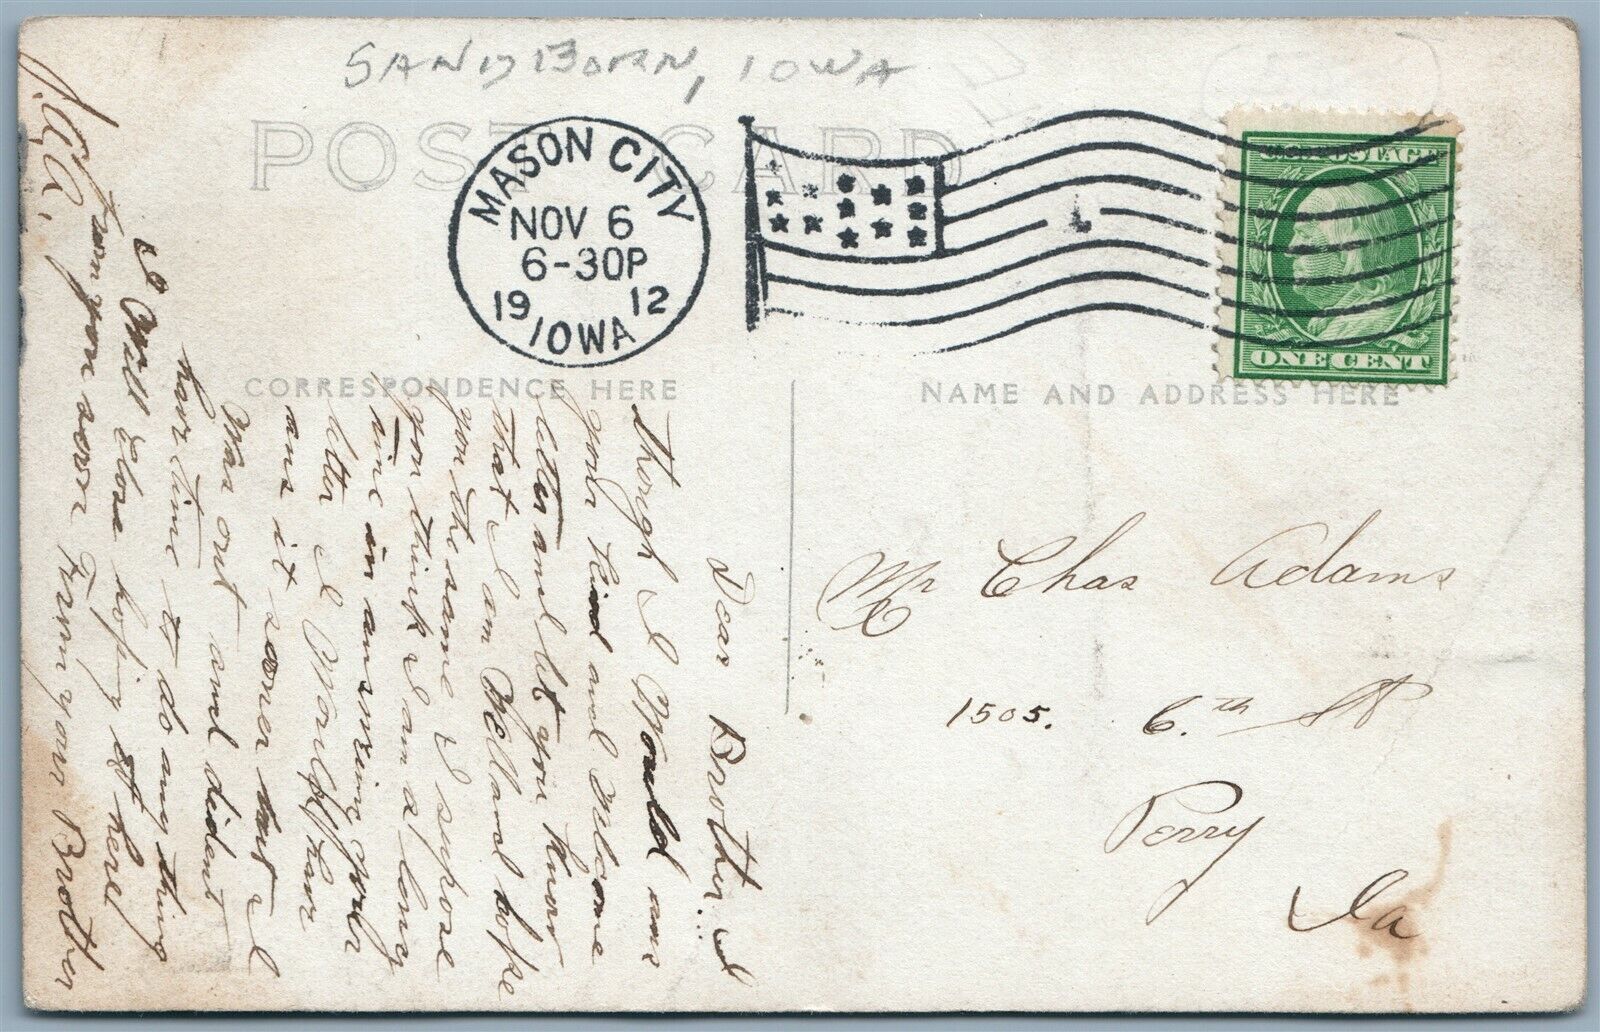 SANDBORN, IOWA
POST CARD
MASON CITY
NOV 6
6-30P
19 12
IOWA
1
U.S. POSTAGE
ONE CENT
CORRESPONDENCE HERE
NAME AND ADDRESS HERE
Mr Chas Adams
1505. 6th St
Perry
Ia
Dear Brother.. I
though I Would ans
your Kind and Welcome
letter and let you know
that I am Well and hope
you the same I supose
you think I am a long
time in answering your
letter I Would have
ans it sooner but I
Was out and dident
have time to do any thing
I Will Close hoping to here
from you soon From your Brother